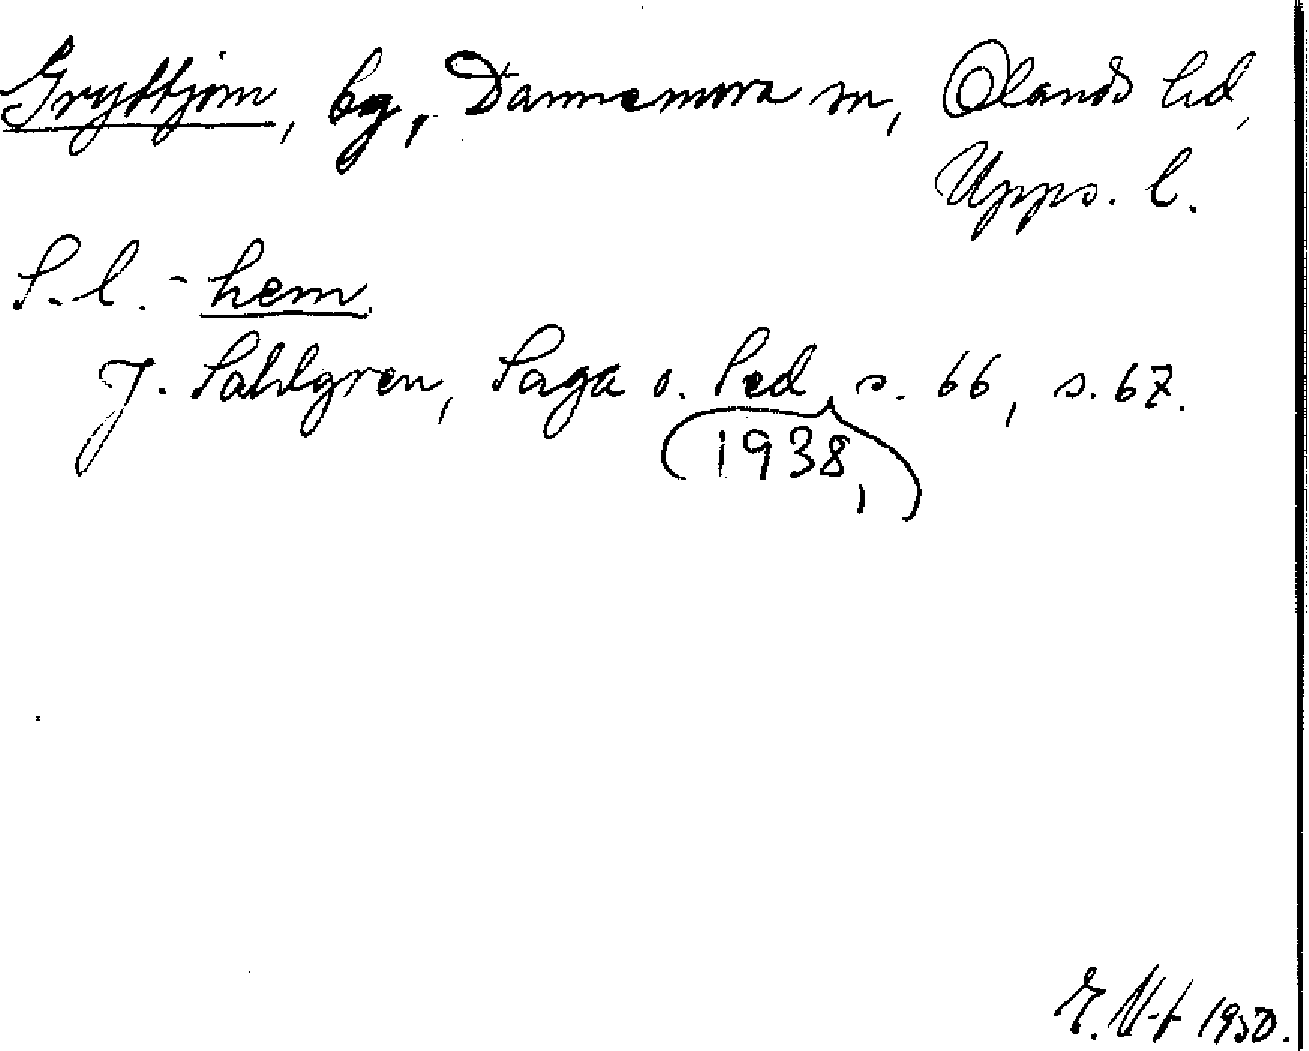 Gryttjom, by, Dannemora sn, Olands hd,
Upps. l.
S. l. - hem.
J. Sahlgren, Saga o. Sed, s. 66, s. 67.
(1938,)
1950.